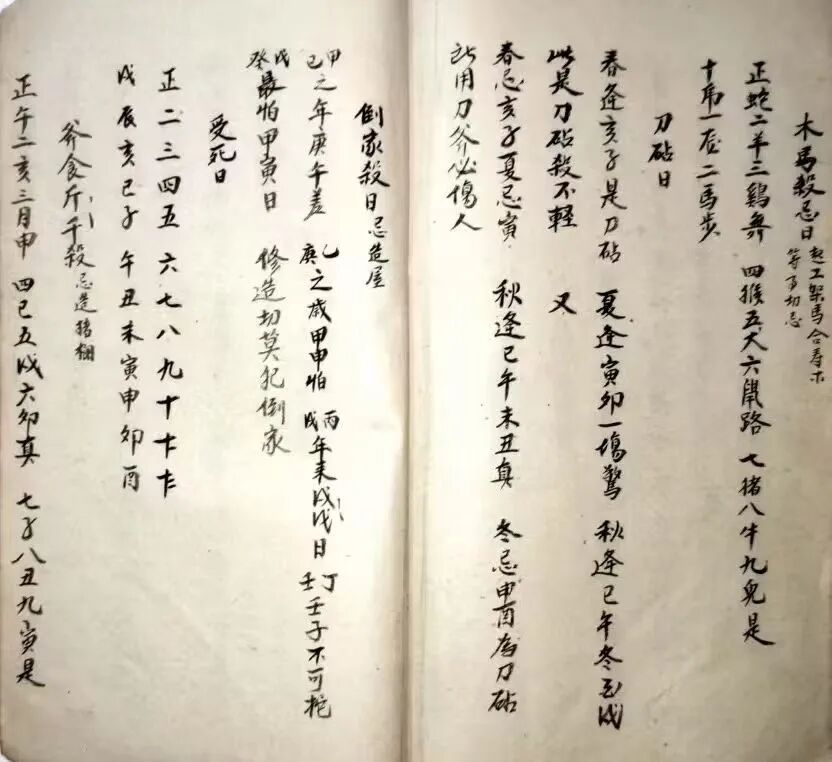 木馬殺忌日 起工架馬合寿木等事切忌
正蛇二羊三鷄舞 四猴五犬六鼠路 七猪八牛九兔是
十虎一龙二馬步
刀砧日
春逢亥子是刀砧 夏逢寅卯一塲驚 秋逢巳午冬
此是刀砧殺不輕 又
春忌亥子夏忌寅 秋逢巳午未丑真 冬忌申酉為刀砧
用刀斧必傷人
倒家殺日 忌造屋
甲己之年庚午差 乙庚之歲甲申怕 丙年未戌戌日 丁壬壬子不可
戊癸最怕甲寅日 修造切莫犯倒家
受死日
正二三四五六七八九十
戌辰亥巳子午丑未寅申卯酉
斧食 斤千殺 忌造猪棚
正午二亥三月申 四巳五戌六卯真 七子八丑九寅是